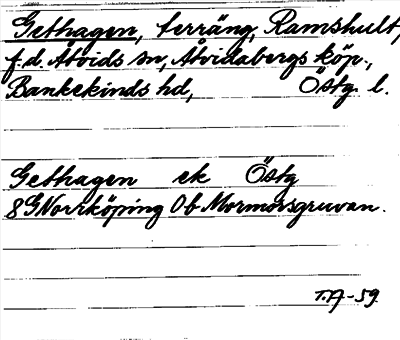 Gethagen, terräng, Ramshult,
f.d. Åtvids sn, Åtvidabergs köp.,
Bankekinds hd, Östg. l.
Gethagen ek Östg
8G Norrköping 0b Mormorsgruvan.
T.A-59